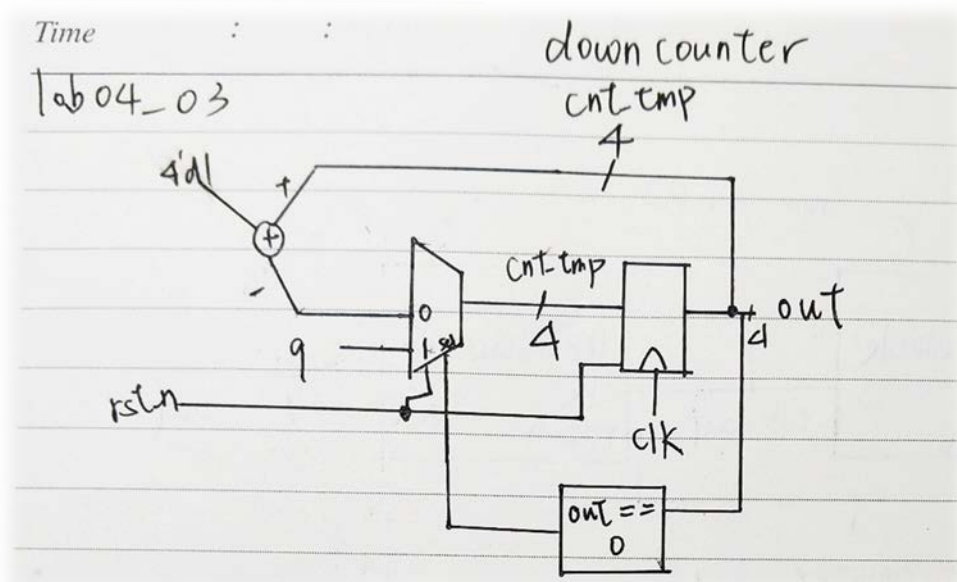 Time : :
down counter
lab04_03
cnt_tmp
4
4'd1
+
+
-
cnt_tmp
0
4
out
4
9
1 sel
rst_n
clk
out ==
0